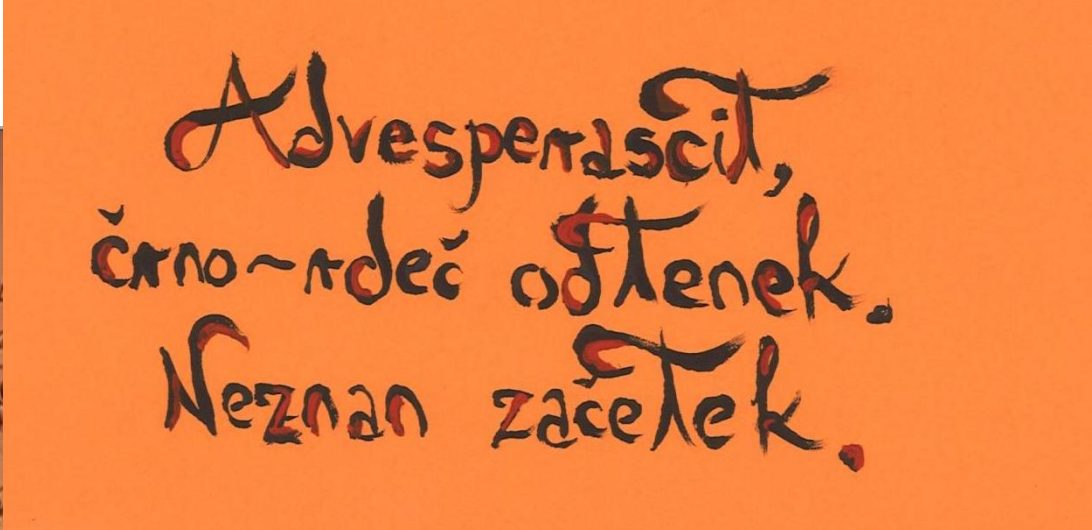 Advesperascit,
črno~rdeč odtenek.
Neznan začetek.